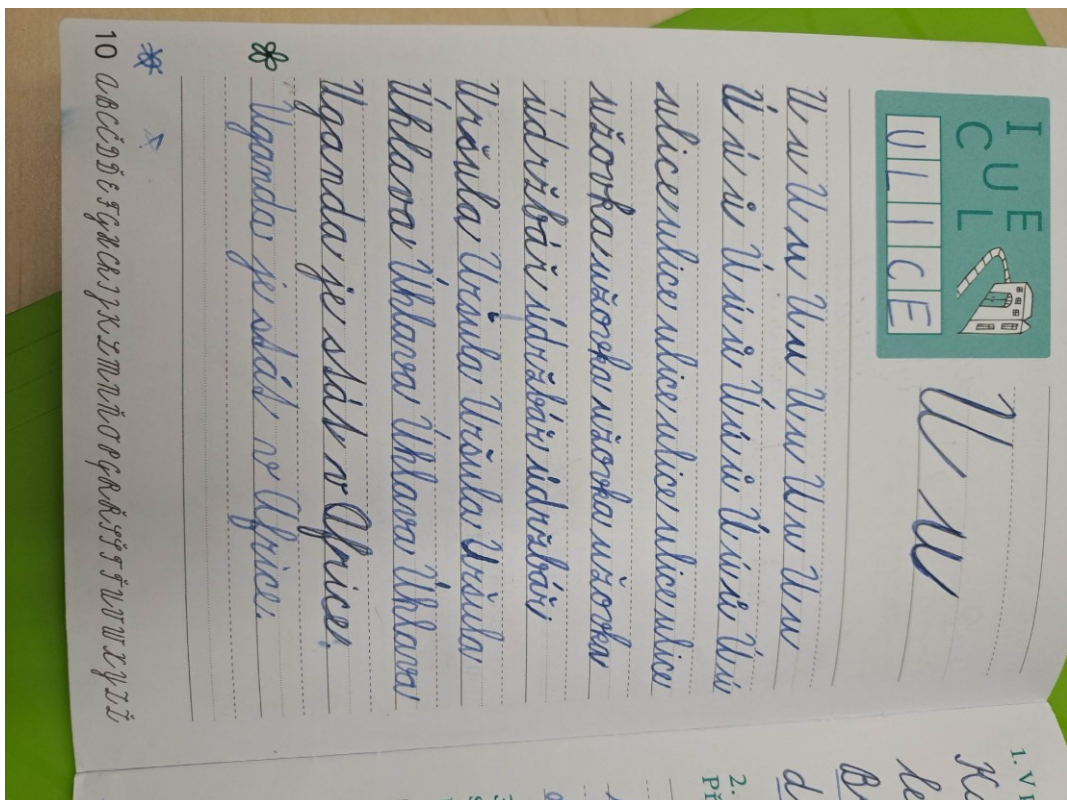 I U E
C L
ULICE
U u
U u U u U u U u U u U u
Ú ú ů Ú ú ů Ú ú ů Ú ú ů Ú ú
ulice ulice ulice ulice ulice ulice
užovka užovka užovka užovka
údržbář údržbář údržbáři
Uršula Uršula Uršula Uršula
Úhlava Úhlava Úhlava Úhlava
Uganda je stát v Africe.
Uganda je stát v Africe.
10
1. V
2.
Př